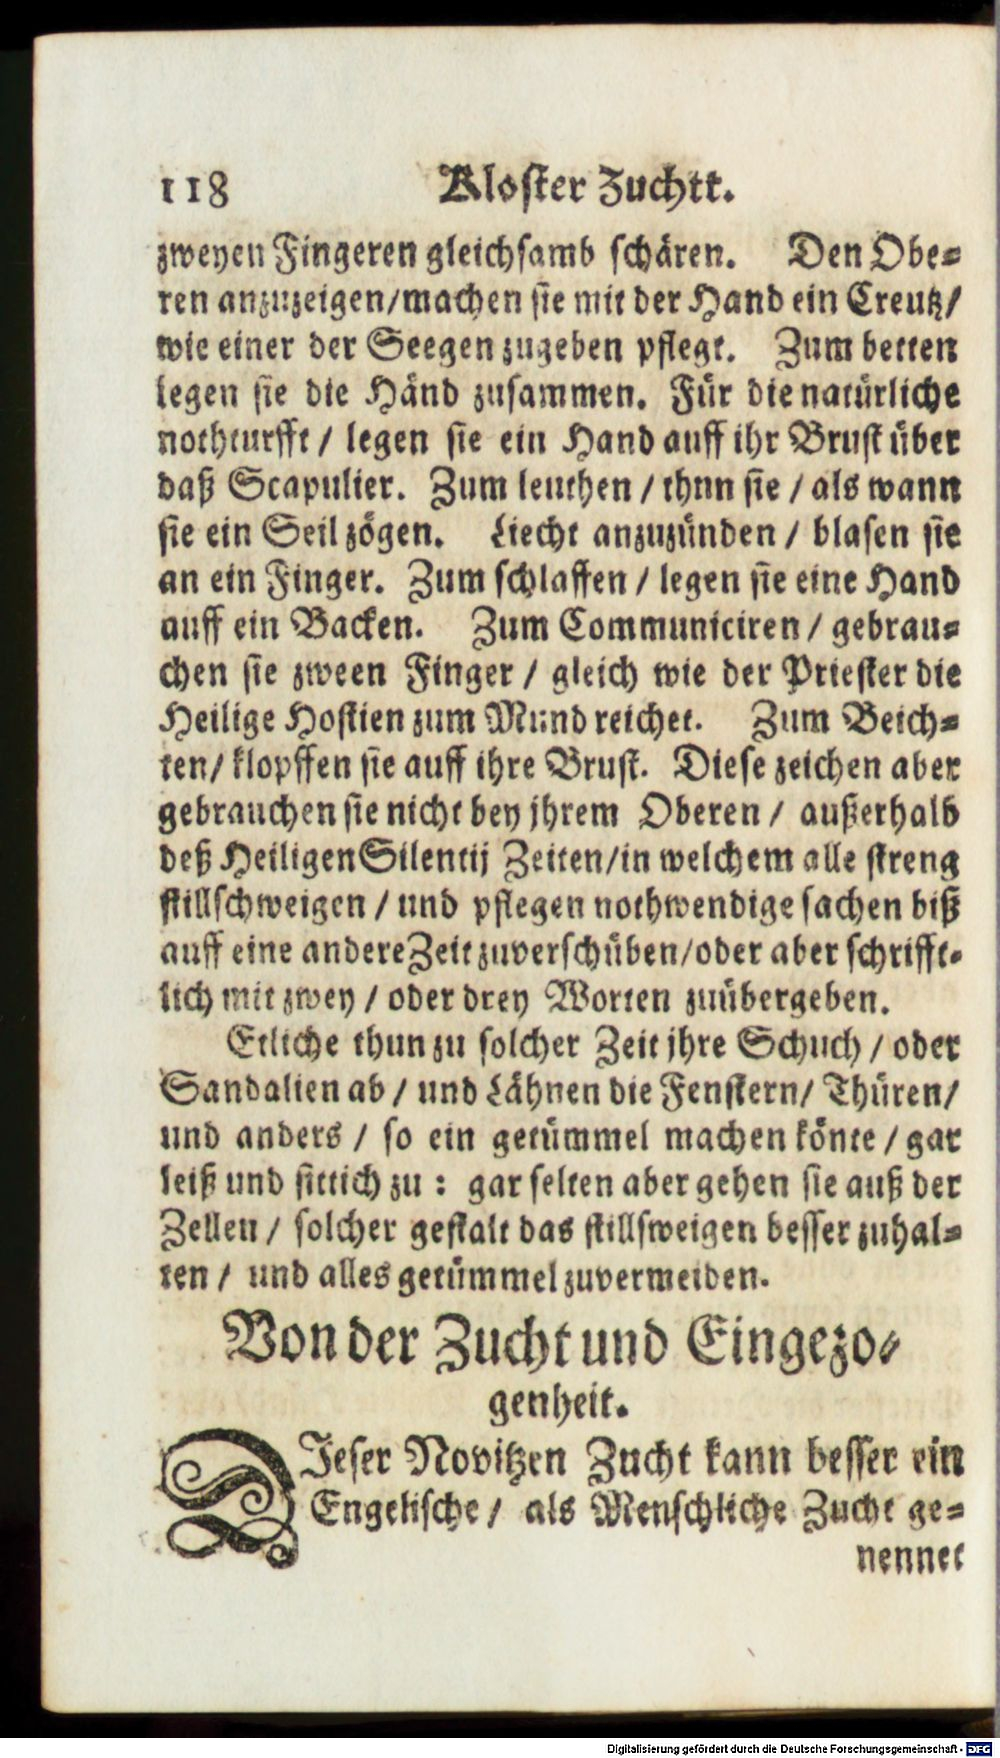 118 Kloster Zuchtt.
zweyen Fingeren gleichsamb schären. Den Obe=
ren anzuzeigen/machen sie mit der Hand ein Creutz/
wie einer der Seegen zugeben pflegt. Zum betten
legen sie die Händ zusammen. Für die natürliche
nothturfft / legen sie ein Hand auff ihr Brust über
daß Scapulier. Zum leuthen / thun sie / als wann
sie ein Seil zögen. Liecht anzuzünden / blasen sie
an ein Finger. Zum schlaffen / legen sie eine Hand
auff ein Backen. Zum Communiciren / gebrau=
chen sie zween Finger / gleich wie der Priester die
Heilige Hostien zum Mund reichet. Zum Beich=
ten/ klopffen sie auff ihre Brust. Diese zeichen aber
gebrauchen sie nicht bey jhrem Oberen / außerhalb
deß Heiligen Silentij Zeiten/in welchem alle streng
stillschweigen / und pflegen nothwendige sachen biß
auff eine andere Zeit zuverschüben/oder aber schrifft=
lich mit zwey / oder drey Worten zuübergeben.
Etliche thun zu solcher Zeit jhre Schuch / oder
Sandalien ab / und Lähnen die Fenstern/ Thüren/
und anders / so ein getümmel machen könte / gar
leiß und sittich zu : gar selten aber gehen sie auß der
Zellen / solcher gestalt das stillsweigen besser zuhal=
ten / und alles getümmel zuvermeiden.
Von der Zucht und Eingezo=
genheit.
DIeser Novitzen Zucht kann besser ein
Engelische / als Menschliche Zucht ge=
nennet
Digitalisierung gefördert durch die Deutsche Forschungsgemeinschaft - DFG